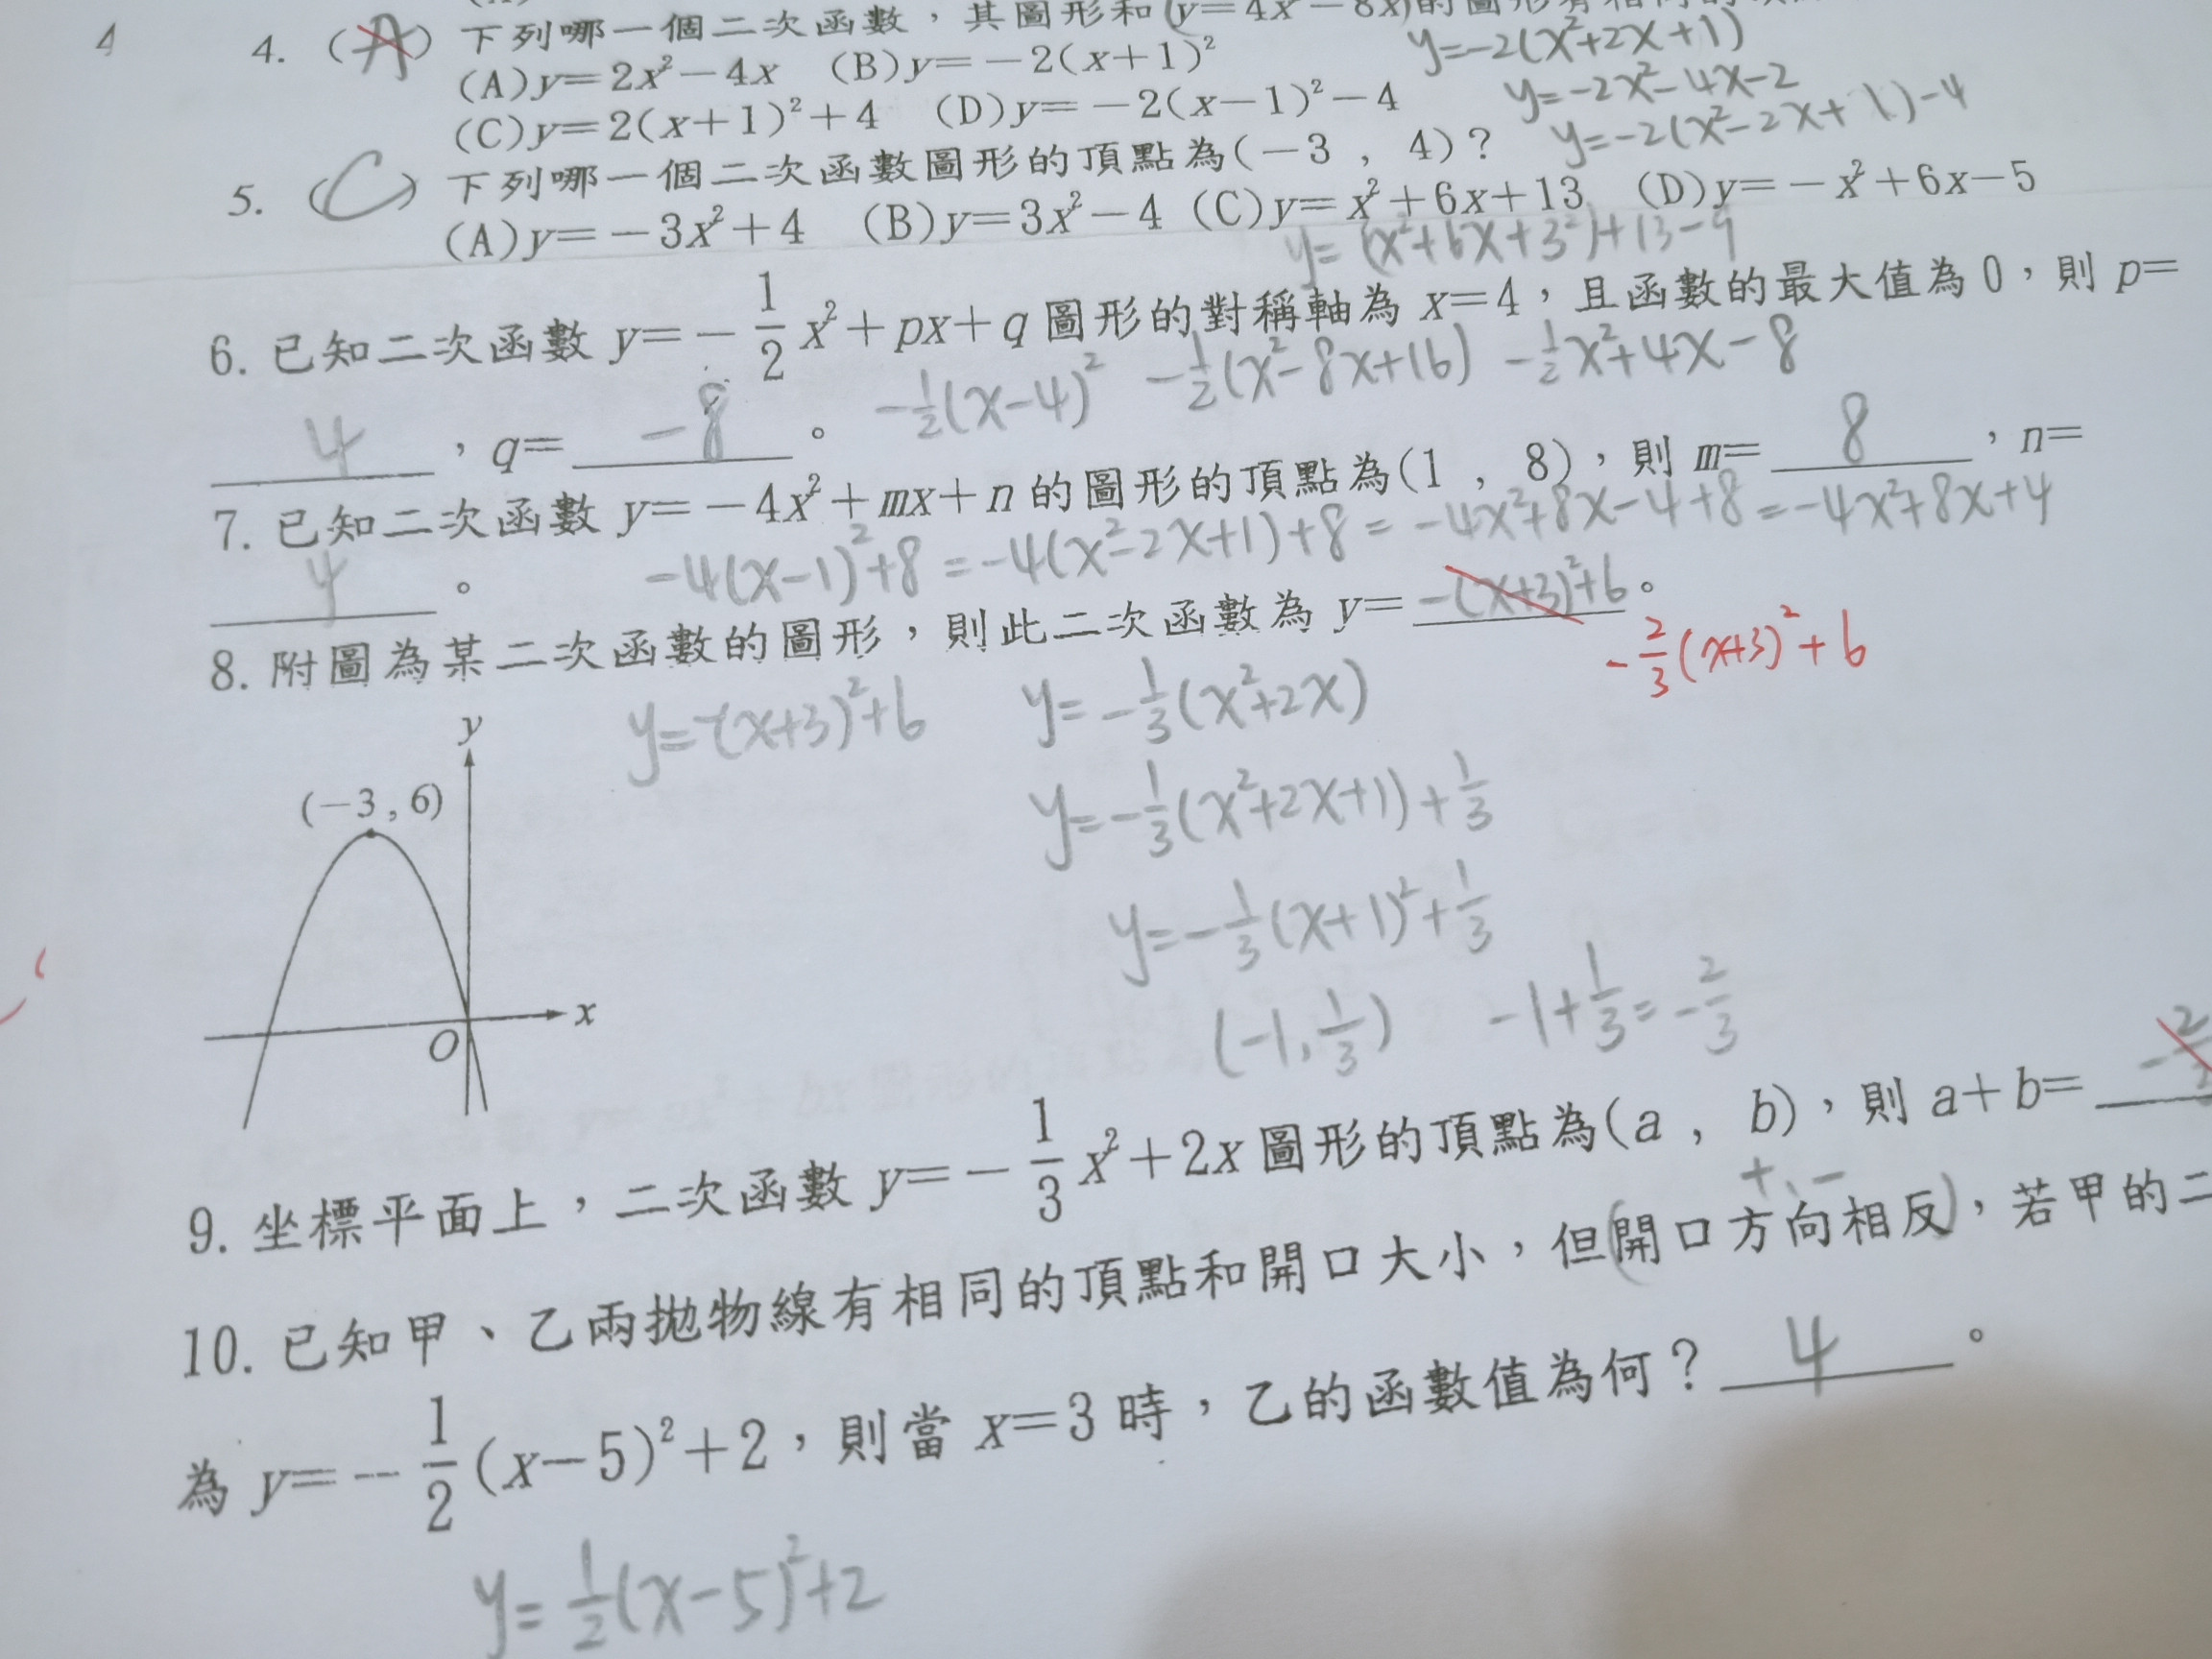 4
4. (A) 下列哪一個二次函數，其圖形和(y=4x²-8x)的圖形有相同的
(A)y=2x²-4x (B)y=-2(x+1)² y=-2(x²+2x+1)
y=-2x²-4x-2
(C)y=2(x+1)²+4 (D)y=-2(x-1)²-4 y=-2(x²-2x+1)-4
5. (C) 下列哪一個二次函數圖形的頂點為(-3 , 4)?
(A)y=-3x²+4 (B)y=3x²-4 (C)y=x²+6x+13 (D)y=-x²+6x-5
y=(x²+6x+3²)+13-9
6. 已知二次函數 y=-1/2 x²+px+q 圖形的對稱軸為 x=4，且函數的最大值為 0，則 p=
4 ，q= -8 。 -1/2(x-4)² -1/2(x²-8x+16) -1/2x²+4x-8
7. 已知二次函數 y=-4x²+mx+n 的圖形的頂點為(1 , 8)，則 m= 8 ，n=
4 。 -4(x-1)²+8=-4(x²-2x+1)+8=-4x²+8x-4+8=-4x²+8x+4
8. 附圖為某二次函數的圖形，則此二次函數為 y= -(x+3)²+6 。
-2/3(x+3)²+6
y=-(x+3)²+6 y=-1/3(x²+2x)
y
(-3,6)
y=-1/3(x²+2x+1)+1/3
y=-1/3(x+1)²+1/3
x
O
(-1,1/3) -1+1/3=-2/3
9. 坐標平面上，二次函數 y=-1/3 x²+2x 圖形的頂點為(a , b)，則 a+b= -2/3
+、-
10. 已知甲、乙兩拋物線有相同的頂點和開口大小，但(開口方向相反)，若甲的二
為 y=-1/2(x-5)²+2，則當 x=3 時，乙的函數值為何? 4 。
y=1/2(x-5)²+2